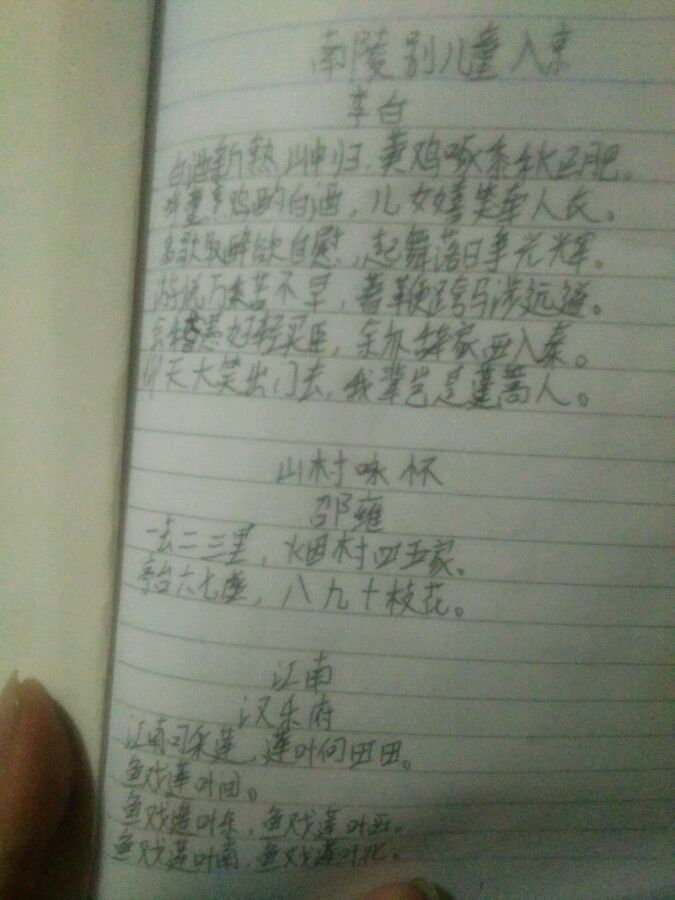 南陵别儿童入京
李白
白酒新熟山中归，黄鸡啄黍秋正肥。
呼童烹鸡酌白酒，儿女嬉笑牵人衣。
高歌取醉欲自慰，起舞落日争光辉。
游说万乘苦不早，着鞭跨马涉远道。
会稽愚妇轻买臣，余亦辞家西入秦。
仰天大笑出门去，我辈岂是蓬蒿人。
山村咏怀
邵雍
一去二三里，烟村四五家。
亭台六七座，八九十枝花。
江南
汉乐府
江南可采莲，莲叶何田田。
鱼戏莲叶间。
鱼戏莲叶东，鱼戏莲叶西。
鱼戏莲叶南，鱼戏莲叶北。